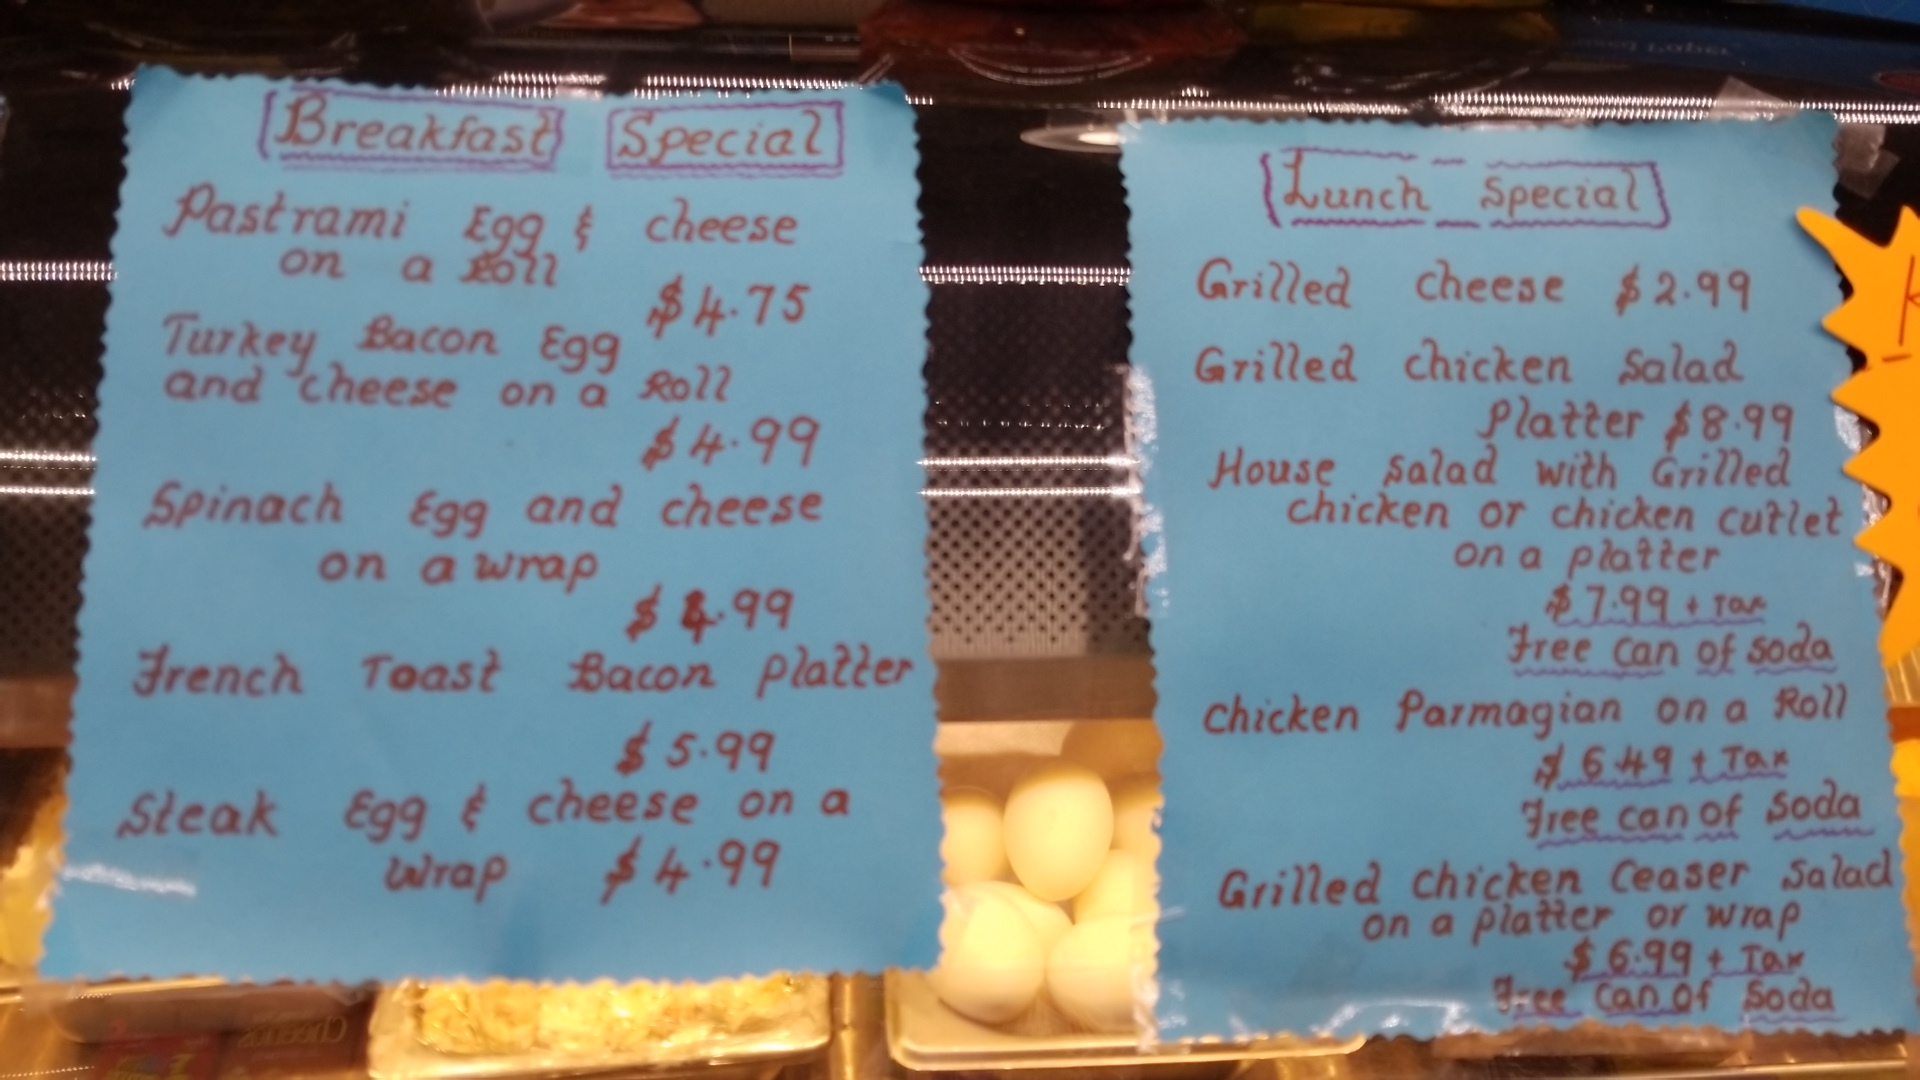 Breakfast Special
Pastrami Egg & cheese
on a Roll
$4.75
Turkey Bacon Egg
and cheese on a Roll
$4.99
Spinach Egg and cheese
on a wrap
$4.99
French Toast Bacon Platter
$5.99
Steak Egg & cheese on a
wrap $4.99
Lunch Special
Grilled cheese $2.99
Grilled chicken salad
Platter $8.99
House salad with Grilled
chicken or chicken cutlet
on a platter
$7.99 + Tax
Free can of soda
chicken Parmagian on a Roll
$6.49 + Tax
Free can of soda
Grilled chicken Ceaser salad
on a platter or wrap
$6.99 + Tax
Free can of soda